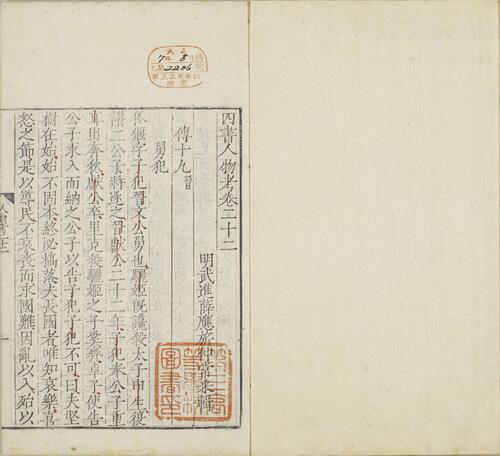 四書人物考卷二十二
明武進薛應旂仲常采輯
傳十九晉
舅犯
狐偃字子犯晉文公舅也驪姬旣讒殺太子申生復
譖二公子將逐之晉獻公二十二年子犯奉公子重
耳出奔狄獻公卒里克殺驪姬之子奚齊卓子使告
公子求入而納之公子以告子犯子犯不可曰夫堅
樹在始始不固本終必槁落夫長國者唯知哀樂喜
怒之節是以導民不哀喪而求國難因亂以入殆以
大正
7年8月
2206
第三高
等學校
圖書印